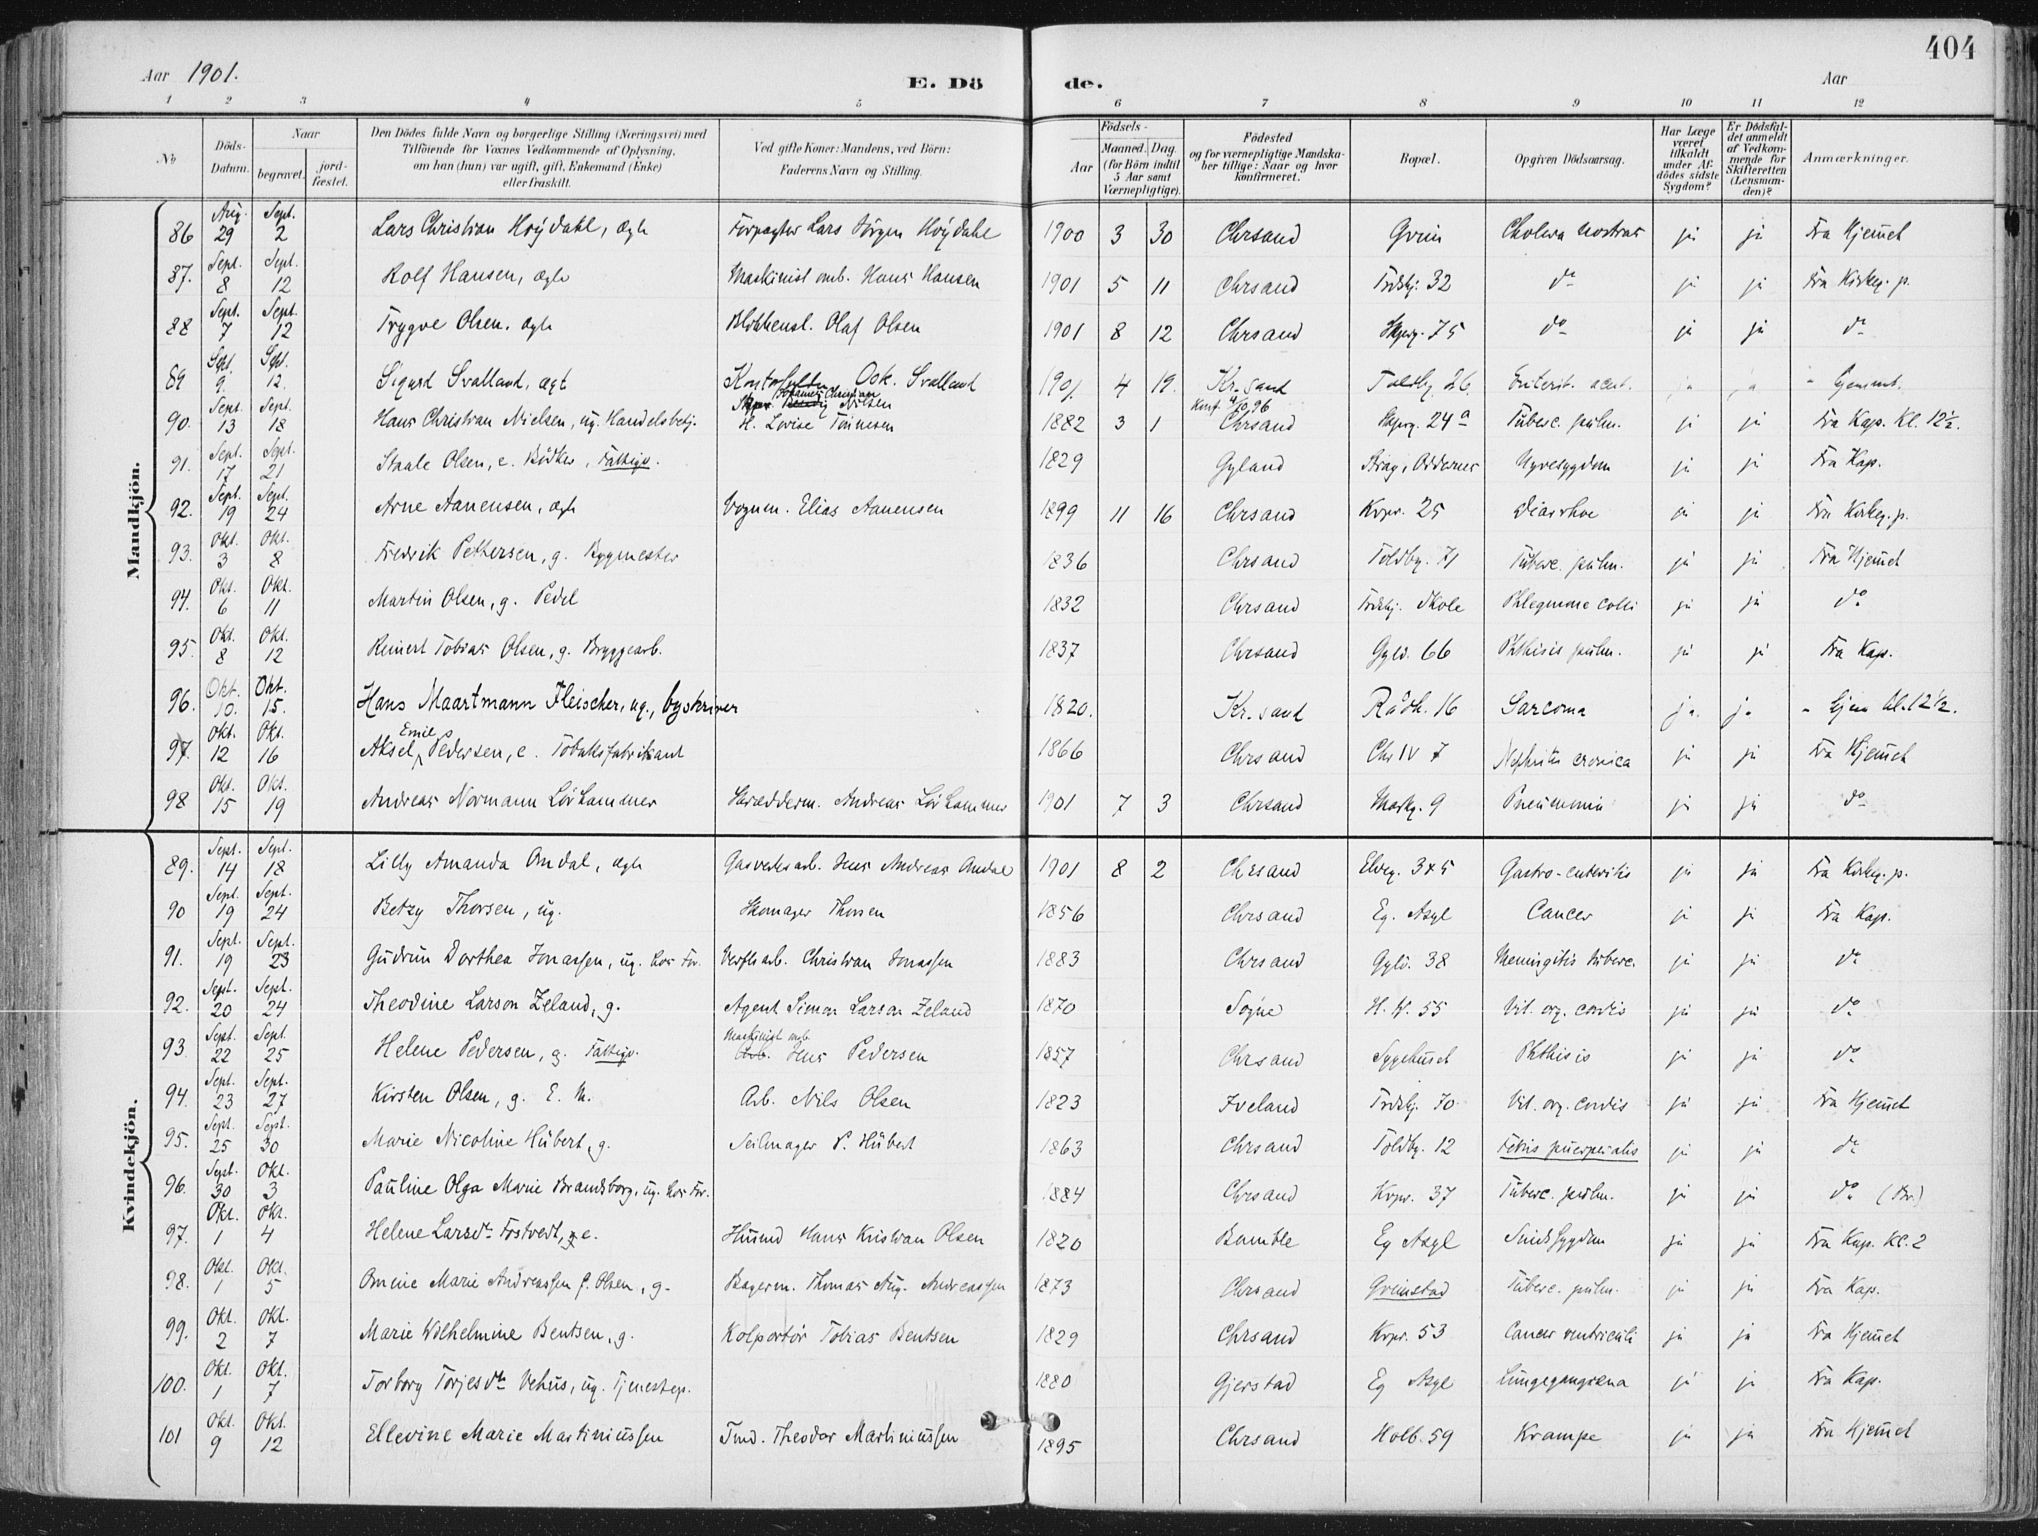 404
Aar 1901. E. Dö de. Aar
1 2 3 4 5 6 7 8 9 10 11 12
No
Döds-Datum.
Naar
begravet.
jord-fæstet.
Den Dödes fulde Navn og borgerlige Stilling (Næringsvei) med
Tilföiende for Voxnes Vedkommende af Oplysning,
om han (hun) var ugift, gift, Enkemand (Enke)
eller fraskilt.
Ved gifte Koner: Mandens, ved Börn:
Faderens Navn og Stilling.
Födsels-
Aar
Maaned. Dag.
(for Börn indtil
5 Aar samt
Værnepligtige).
Födested
og for værnepligtige Mandska-
ber tillige: Naar og hvor
konfirmeret.
Bopæl.
Opgiven Dödsaarsag.
Har Læge
været
tilkaldt
under Af-
dödes sidste
Sygdom?
Er Dödsfal-
det anmeldt
af Vedkom-
mende for
Skifteretten
(Lensman-
den)?
Anmærkninger.
Mandkjön.
86 Aug. 29 Sept. 2 Lars Christian Höydahl, ægte Forpagter Lars Jörgen Höydahl 1900 3 30 Chrsand Grim Cholera nostras ja ja Fra Hjemmet
87. Sept. 8 Sept. 12 Rolf Hansen, ægte Maskinist omb. Hans Hansen 1901 5 11 Chrsand Tordskj. 32 do ja ja Fra Kirkeg. p.
88 Sept. 7 Sept. 12 Trygve Olsen, ægte Blikkensl. Olaf Olsen 1901 8 12 Chrsand Skperg. 75 do ja ja do
89 Sept. 9. Sept. 12. Sigurd Svalland, ægt Osk. Svalland 1901 4 19. Kr.sand Toldbg. 26 Enterit. acut. ja ja " Hjemmet.
90. Sept. 13 Sept. 18 Hans Christian Nielsen, ug. Handelsbetj. Johannes Christian Nilsen
H. Lovise Tönnesen 1882 3 1 Konf. 4/10 96 Chrsand Skperg. 24a Tuberc. pulm. ja ja Fra Kap. Kl. 12½.
91. Sept. 17 Sept. 21 Staale Olsen, e. Bödker, Fattigv. 1829 Gyland Oddernes Nyresygdom ja ja Fra Kap.
92. Sept. 19 Sept. 24 Arne Aanensen, ægte Vognm. Elias Aanensen 1899 11 16 Chrsand Kvpr. 25 Diarrhoe ja ja Fra Kirkeg. p.
93. Okt. 3 Okt. 8 Fredrik Pettersen, g. Bygmester 1836 Chrsand Toldbg. 71 Tuberc. pulm. ja ja Fra Hjemmet
94. Okt. 6 Okt. 11 Martin Olsen, g. Pedel 1832 Chrsand Tordskj. Skole Phlegmone colli ja ja do
95. Okt. 8 Okt. 12 Reinert Tobias Olsen, g. Bryggearb. 1837 Chrsand Gyld. 66 Phthisis pulm. ja ja Fra Kap.
96. Okt. 10. Okt. 15. Hans Maartmann Fleischer, ug., byskriver 1820. Kr.sand Rådh. 16 Sarcoma ja. ja " Hjem kl. 12½.
97. Okt. 12 Okt. 16 Aksel Emil Pedersen, e. Tobaksfabrikant 1866 Chrsand Chr IV 7 Nephritis cronica ja ja Fra Hjemmet
98 Okt. 15 Okt. 19 Andreas Normann Lövhammer Skrædderm. Andreas Lövhammer 1901 7 3 Chrsand Markg. 9 Pneumonia ja ja do
Kvindekjön.
89. Sept. 14 Sept. 18 Lilly Amanda Omdal, ægte Gasverksarb. Jens Andreas Omdal 1901 8 2 Chrsand Elveg. 3x5 Gastro-enteritis ja ja Fra Kirkeg. p.
90 Sept. 19 Sept. 24 Betzy Thorsen, ug. Skomager Thorsen 1856 Chrsand Eg. Asyl Cancer ja ja Fra Kap.
91. Sept. 19 Sept. 23 Gudrun Dorthea Jonassen, ug. hos For. Verftsarb. Christian Jonassen 1883 Chrsand Gyld. 38 Meningitis tuberc. ja ja do
92. Sept. 20 Sept. 24 Theodine Larson Zeland, g. Agent Simon Larson Zeland 1870 Sogne H. W. 55 Vit. org. cordis ja ja do
93. Sept. 22 Sept. 25 Helene Pedersen, g. Fattigv. Maskinist omb. Arb. Jens Pedersen 1857 Chrsand Sygehuset Phthisis ja ja do
94. Sept. 23 Sept. 27 Kirsten Olsen, g. E. M. Arb. Nils Olsen 1823 Iveland Tordskj. 70 Vit. org. cordis ja ja Fra Hjemmet
95. Sept. 25 Sept. 30 Marie Nicoline Hubert, g. Seilmager P. Hubert 1863 Chrsand Toldbg. 12 Febris puerperalis ja ja do
96. Sept. 30 Okt. 3 Pauline Olga Marie Brandsborg, ug. hos For. 1884 Chrsand Kvpr. 37 Tuberc. pulm. ja ja do
97. Okt. 1 Okt. 4 Helene Larsdt Fostvedt, e. Husmd Hans Kristian Olsen 1820 Bamble Eg Asyl Sindssygdom ja ja Fra Kap. Kl. 2
98. Okt. 1 Okt. 5 Omine Marie Andreassen f. Olsen, g. Bagerm. Thomas Aug. Andreassen 1873 Chrsand Grimstad Tuberc. pulm. ja ja Fra Kap.
99. Okt. 2 Okt. 7 Marie Wilhelmine Bentsen, g. Kolportör Tobias Bentsen 1829 Chrsand Kvpr. 53 Cancer ventriculi ja ja Fra Hjemmet
100. Okt. 1 Okt. 7 Torborg Torjesdtr Vehus, ug. Tjenestep. 1880 Gjerstad Eg Asyl Lungegangræna ja ja Fra Kap.
101 Okt. 9 Okt. 12 Ellevine Marie Martiniussen Tmd. Theodor Martiniussen 1895 Chrsand Holb. 59 Krampe ja ja Fra Hjemmet